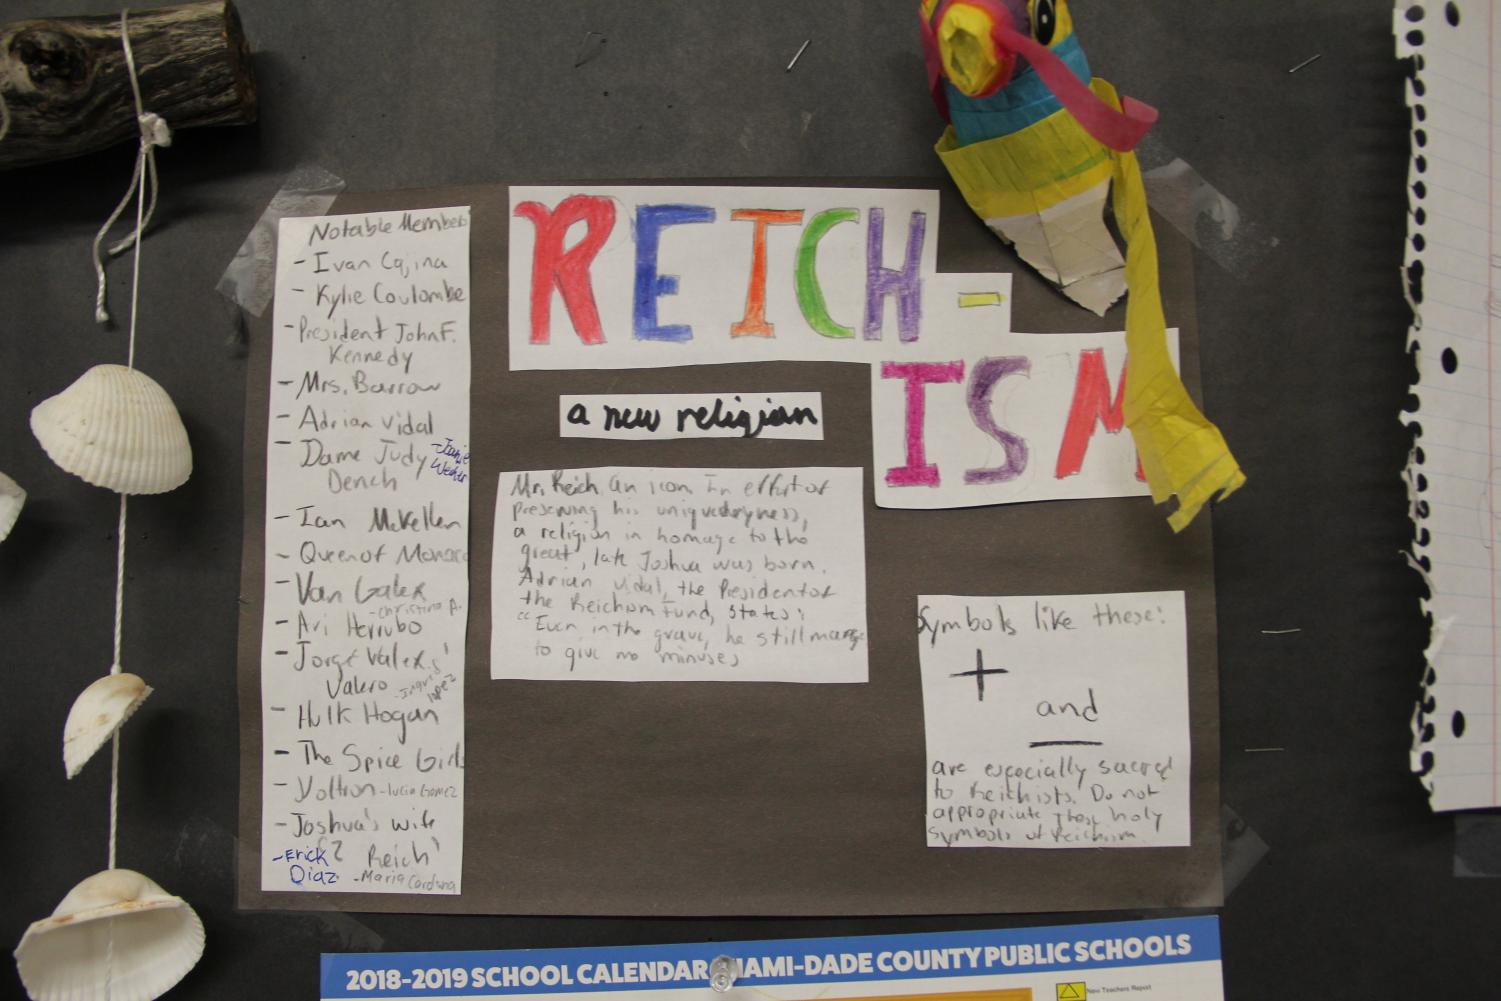 Notable Members
- Ivan Cajina
- Kylie Coulombe
- President John F.
Kennedy
- Mrs. Barrow
- Adrian Vidal
- Dame Judy
Dench
- Ian McKellen
- Queen of Monaco
- Van Galex
- Christina A.
- Ari Herrubo
- Jorge Valex
Valero
- Ingrid
lopez
- Hulk Hogan
- The Spice Girls
- Voltron - lucia Gomez
- Joshua's wife
Reich
- Erick
Diaz
- Maria Cardona
REICH-
ISM
a new religion
Mr. Reich. An icon. In effort of
preserving his
a religion in homage to the
great, late Joshua was born.
Adrian Vidal, the President of
the Reichism Fund, states:
"Even in the grave, he still manages
to give me minuses
Symbols like these:
+
and
—
are especially sacred
to Reichists. Do not
appropriate these holy
symbols of Reichism
2018-2019 SCHOOL CALENDAR MIAMI-DADE COUNTY PUBLIC SCHOOLS
New Teachers Report